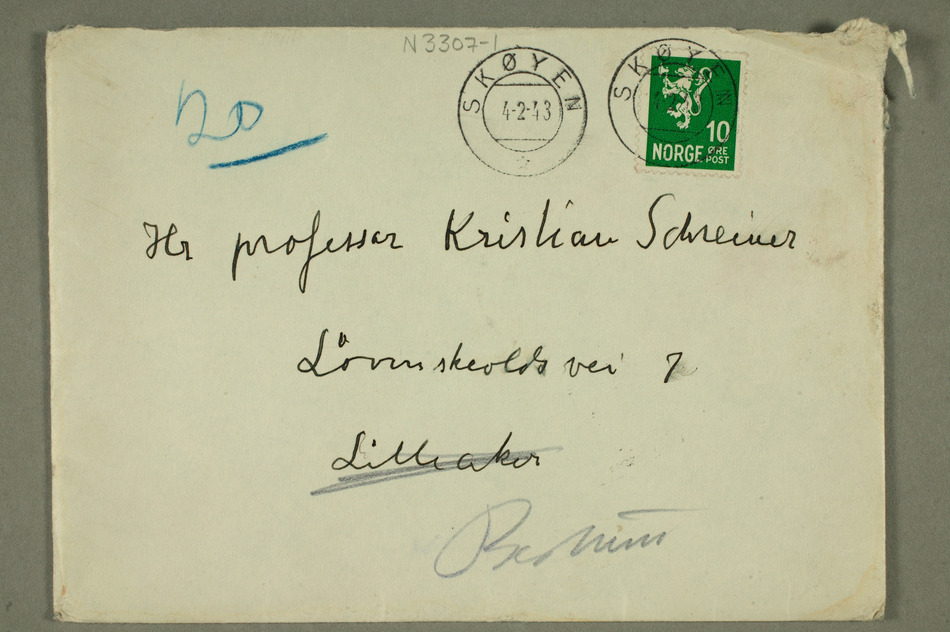 N3307-1
SKØYEN
4-2-43
SKØYEN
10
NORGE ØRE POST
20
Hr professor Kristian Schreiner
Lövenskiolds vei 7
Lilleaker
Bestum